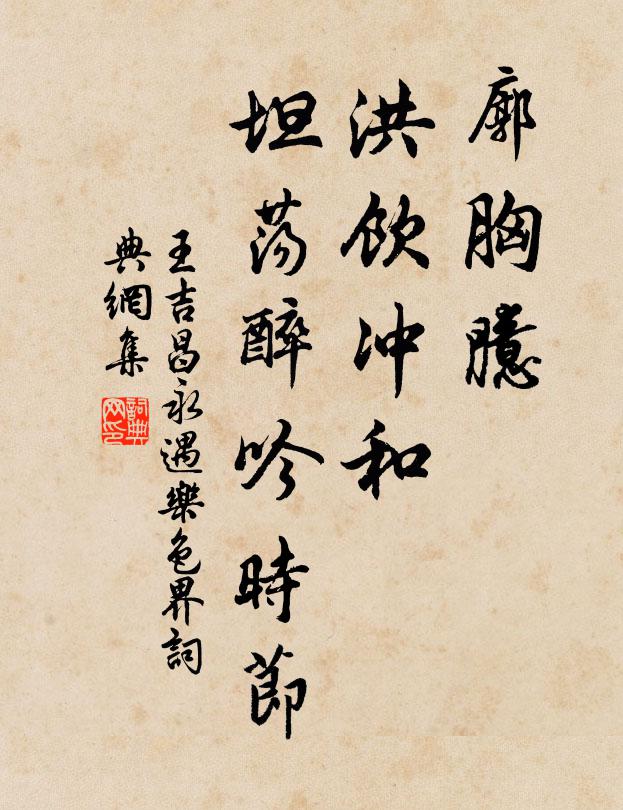 廓胸臆
洪飲冲和
坦蕩醉吟時節
王吉昌永遇樂色界詞
典網集
詞典網印